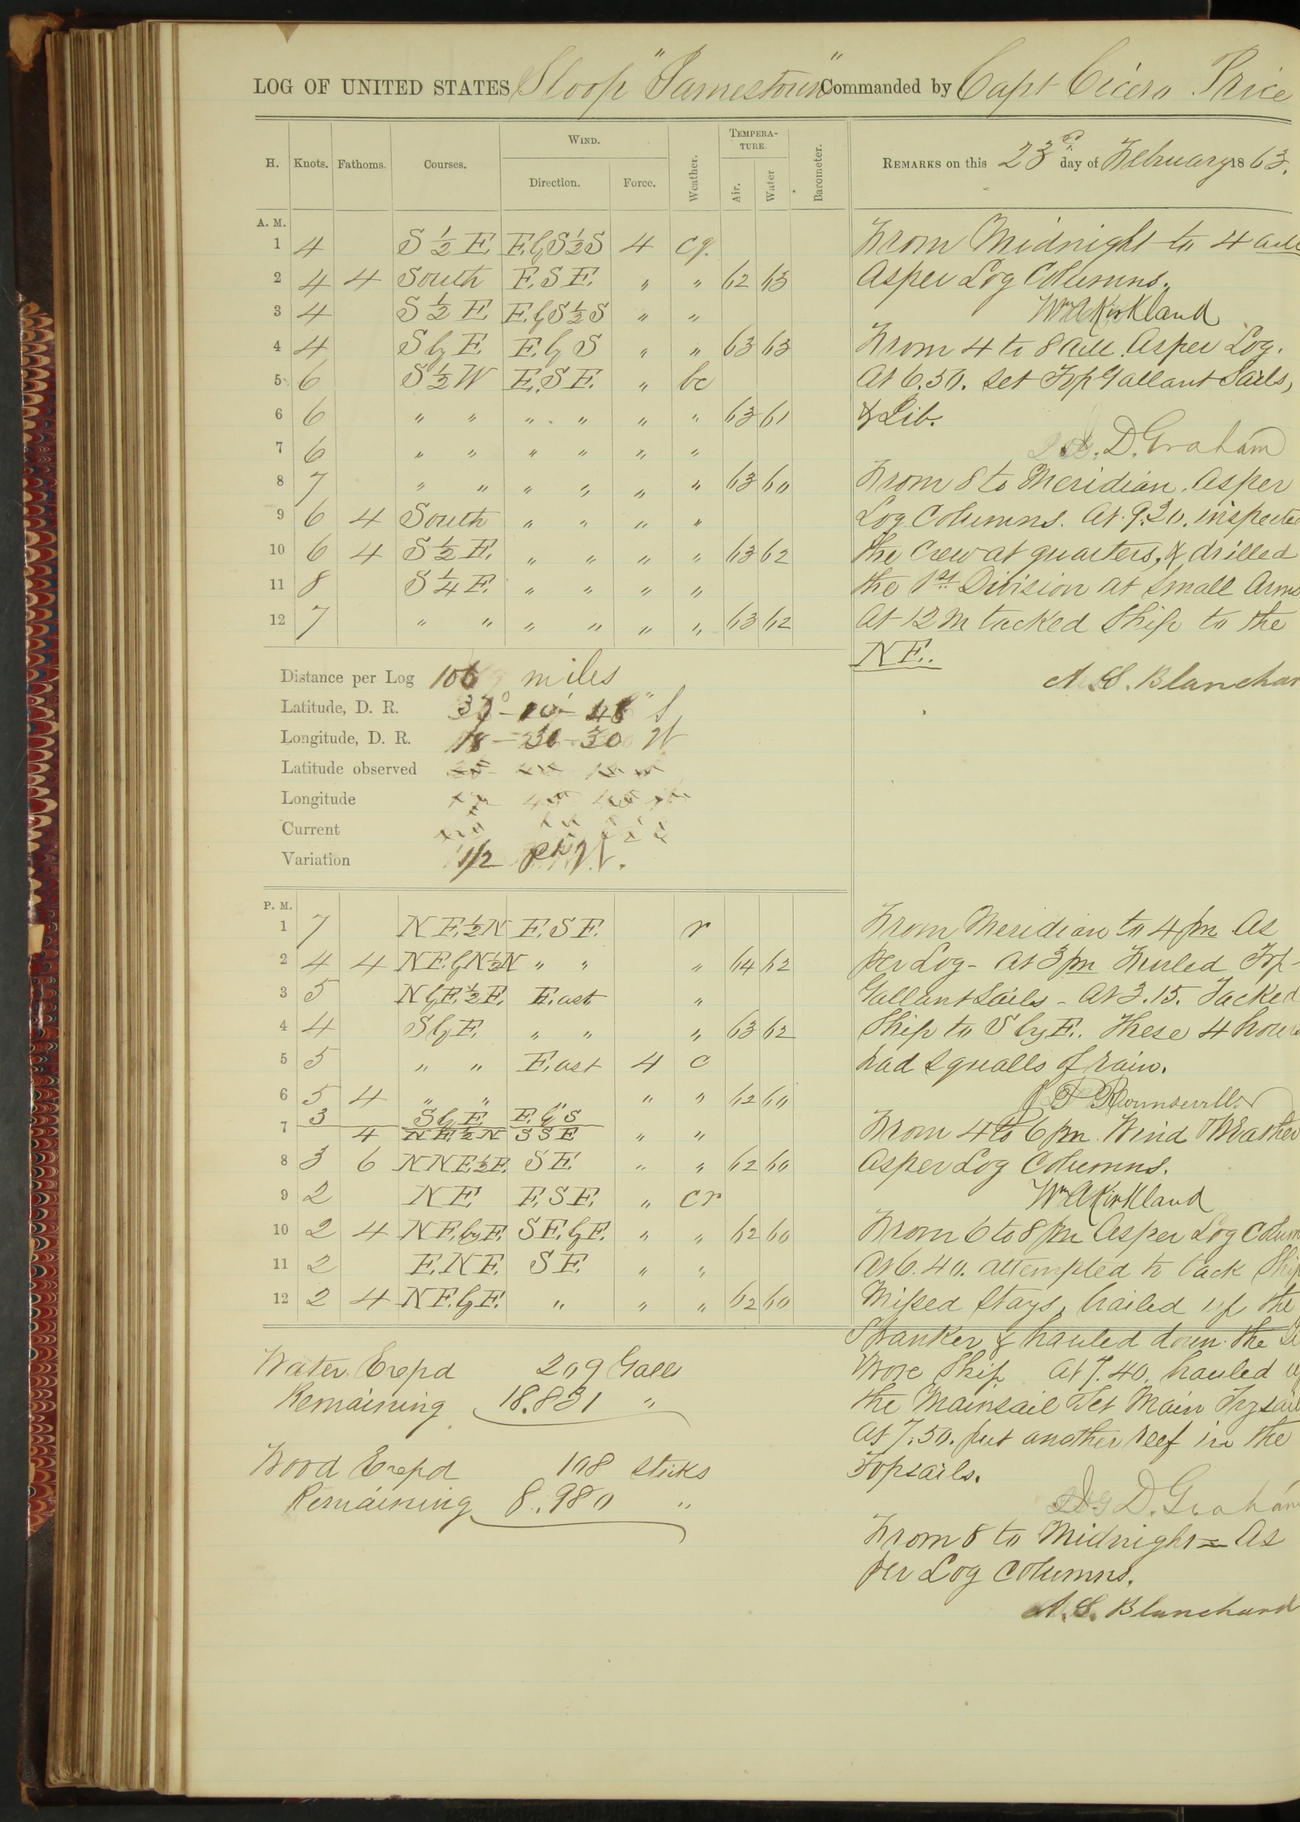 LOG OF UNITED STATES Sloop "Jamestown" Commanded by Capt Cicero Price
H. Knots. Fathoms. Courses. WIND. Direction. Force. Weather. TEMPERATURE. Air. Water Barometer.
REMARKS on this 23d day of February 1863.
A. M.
1 4 S ½ E E by S ½ S 4 cq.
2 4 4 South E.S.E. " " 62 63
3 4 S ½ E E by S ½ S " "
4 4 S by E. E by S " " 63 63
5 6 S ½ W E.S.E. " bc
6 6 " " " " " " 63 61
7 6 " " " " " "
8 7 " " " " " " 63 60
9 6 4 South " " " "
10 6 4 S ½ E. " " " " 63 62
11 8 S ¼ E. " " " "
12 7 " " " " " " 63 62
Distance per Log 106 miles
Latitude, D. R. S
Longitude, D. R. 30 W
Latitude observed
Longitude
Current
Variation 1 1/2 pts W.
P. M.
1 7 NE. ½ N E.S.E. r
2 4 4 NE by N ½ N " " " 64 62
3 5 N by E. ½ E. East "
4 4 S by E. " " " 63 62
5 5 " " East 4 c
6 5 4 " " " " " 62 60
7 3 S by E E. by S
4 NE ½ N SSE " "
8 3 6 NNE ½ E. SE. " " 62 60
9 2 NE E.S.E. " cr
10 2 4 NE. by E. SE. by E. " " 62 60
11 2 E.N.E. SE. " "
12 2 4 NE. by E. " " " 62 60
Water Expd 209 Galls
Remaining 18.831 "
Wood Expd 108 sticks
Remaining 8.980 "
From Midnight to 4 am
As per Log Columns.
Wm A Kirkland
From 4 to 8 am. As per Log.
At 6.30. set Top Gallant Sails,
& Jib.
J. D. Graham
From 8 to Meridian. As per
Log Columns. At 9.30. inspected
the Crew at quarters, & drilled
the 1st Division at Small Arms
At 12 M tacked Ship to the
NE.
A. S. Blanchar
From Meridian to 4 pm As
per Log - At 3 pm Furled Top-
Gallant Sails - At 3.15. Tacked
Ship to S by E. These 4 hours
had squalls of rain.
From 4 to 6 pm. Wind & Weather
As per Log Columns.
Wm A Kirkland
From 6 to 8 pm As per Log Colum
At 6.40. attempted to tack Ship
Missed Stays, brailed up the
Spanker & hauled down the
Wore Ship At 7.40. hauled up
the Mainsail Set Main Trysail
At 7.50. put another reef in the
Topsails.
J. D. Graham
From 8 to Midnight = As
per Log Columns.
A. S. Blanchard